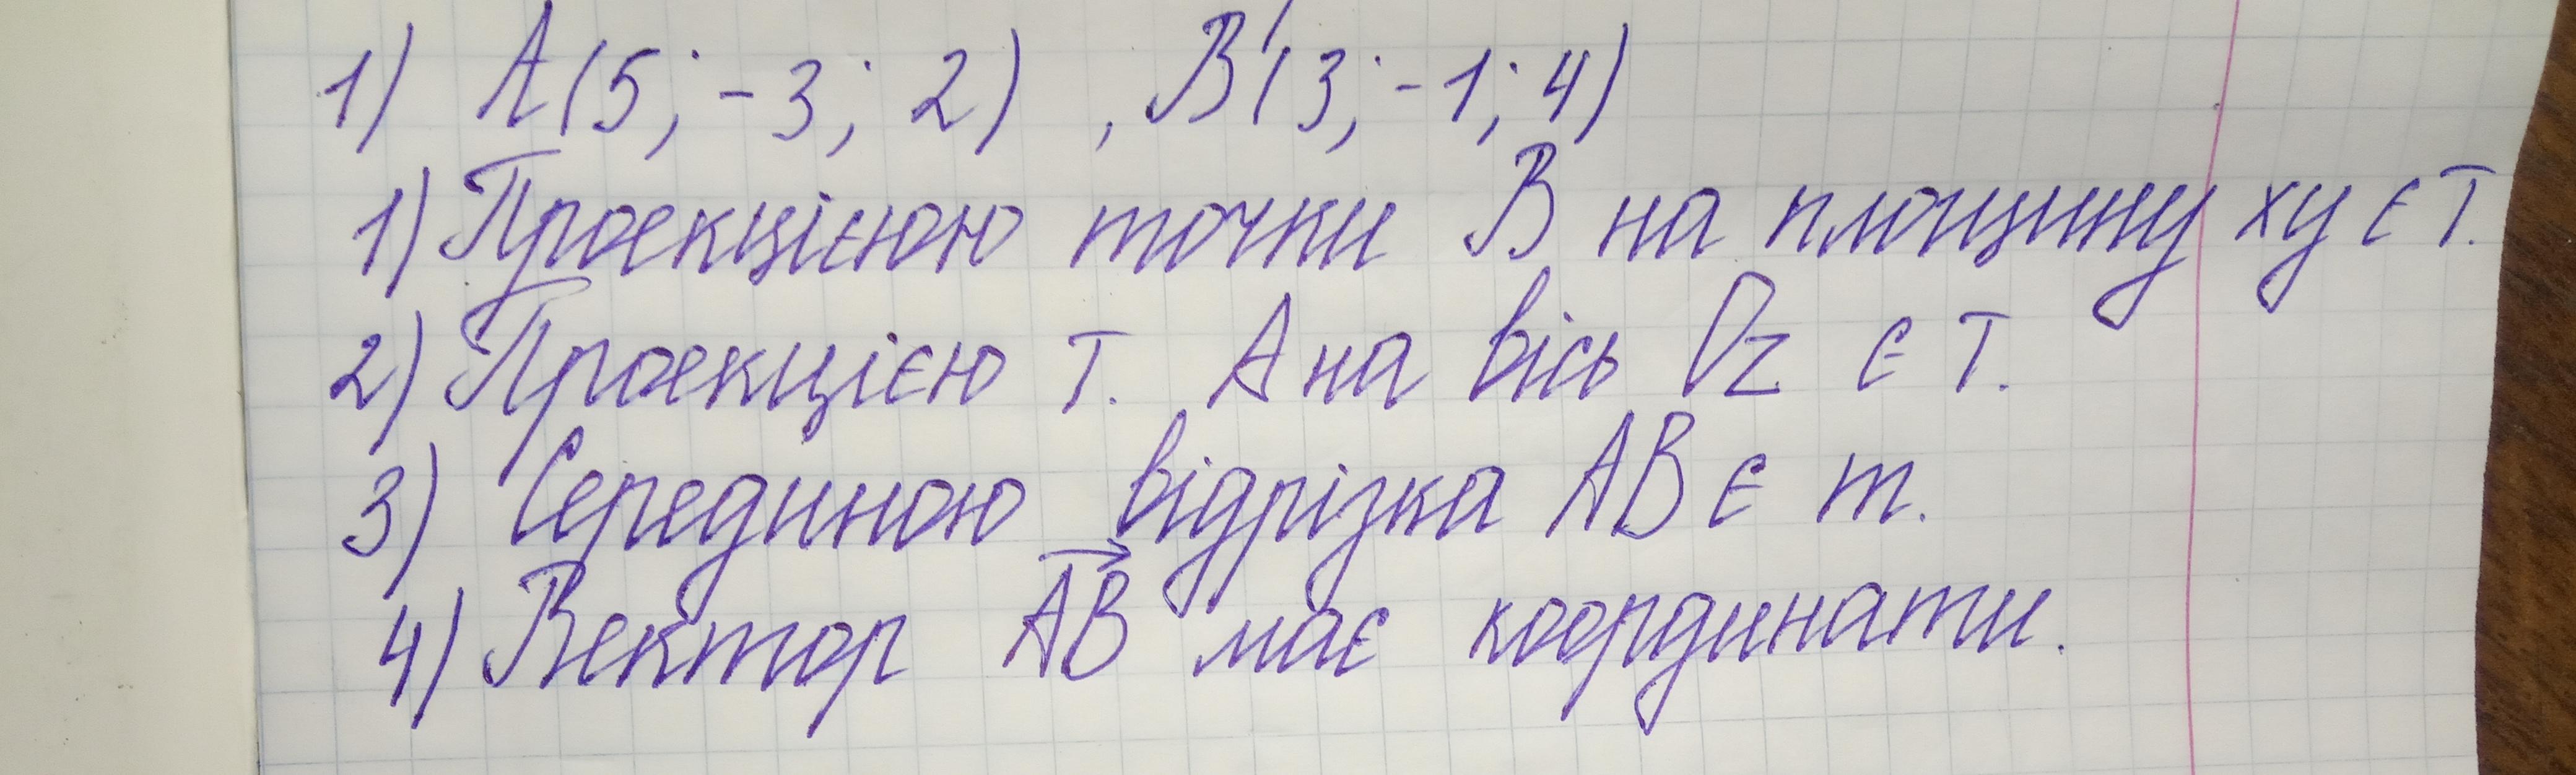 1) A(5; -3; 2) , B(3; -1; 4)
1) Проекцією точки B на площину xy є т.
2) Проекцією т. A на вісь Oz є т.
3) Серединою відрізка AB є т.
4) Вектор AB має координати.